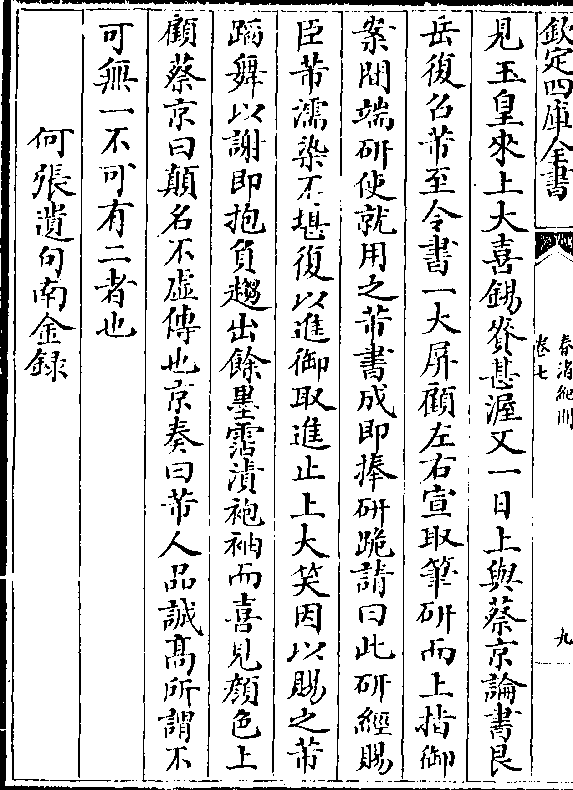 欽定四庫全書
春渚紀聞
卷七
九
見玉皇來上大喜錫賚甚渥又一日上與蔡京論書艮
岳復召芾至令書一大屏顧左右宣取筆研而上指御
案間端研使就用之芾書成即捧研跪請曰此研經賜
臣芾濡染不堪復以進御取進止上大笑因以賜之芾
蹈舞以謝即抱負趨出餘墨霑漬袍袖而喜見顏色上
顧蔡京曰顛名不虛傳也京奏曰芾人品誠髙所謂不
可無一不可有二者也
何張遺句南金録